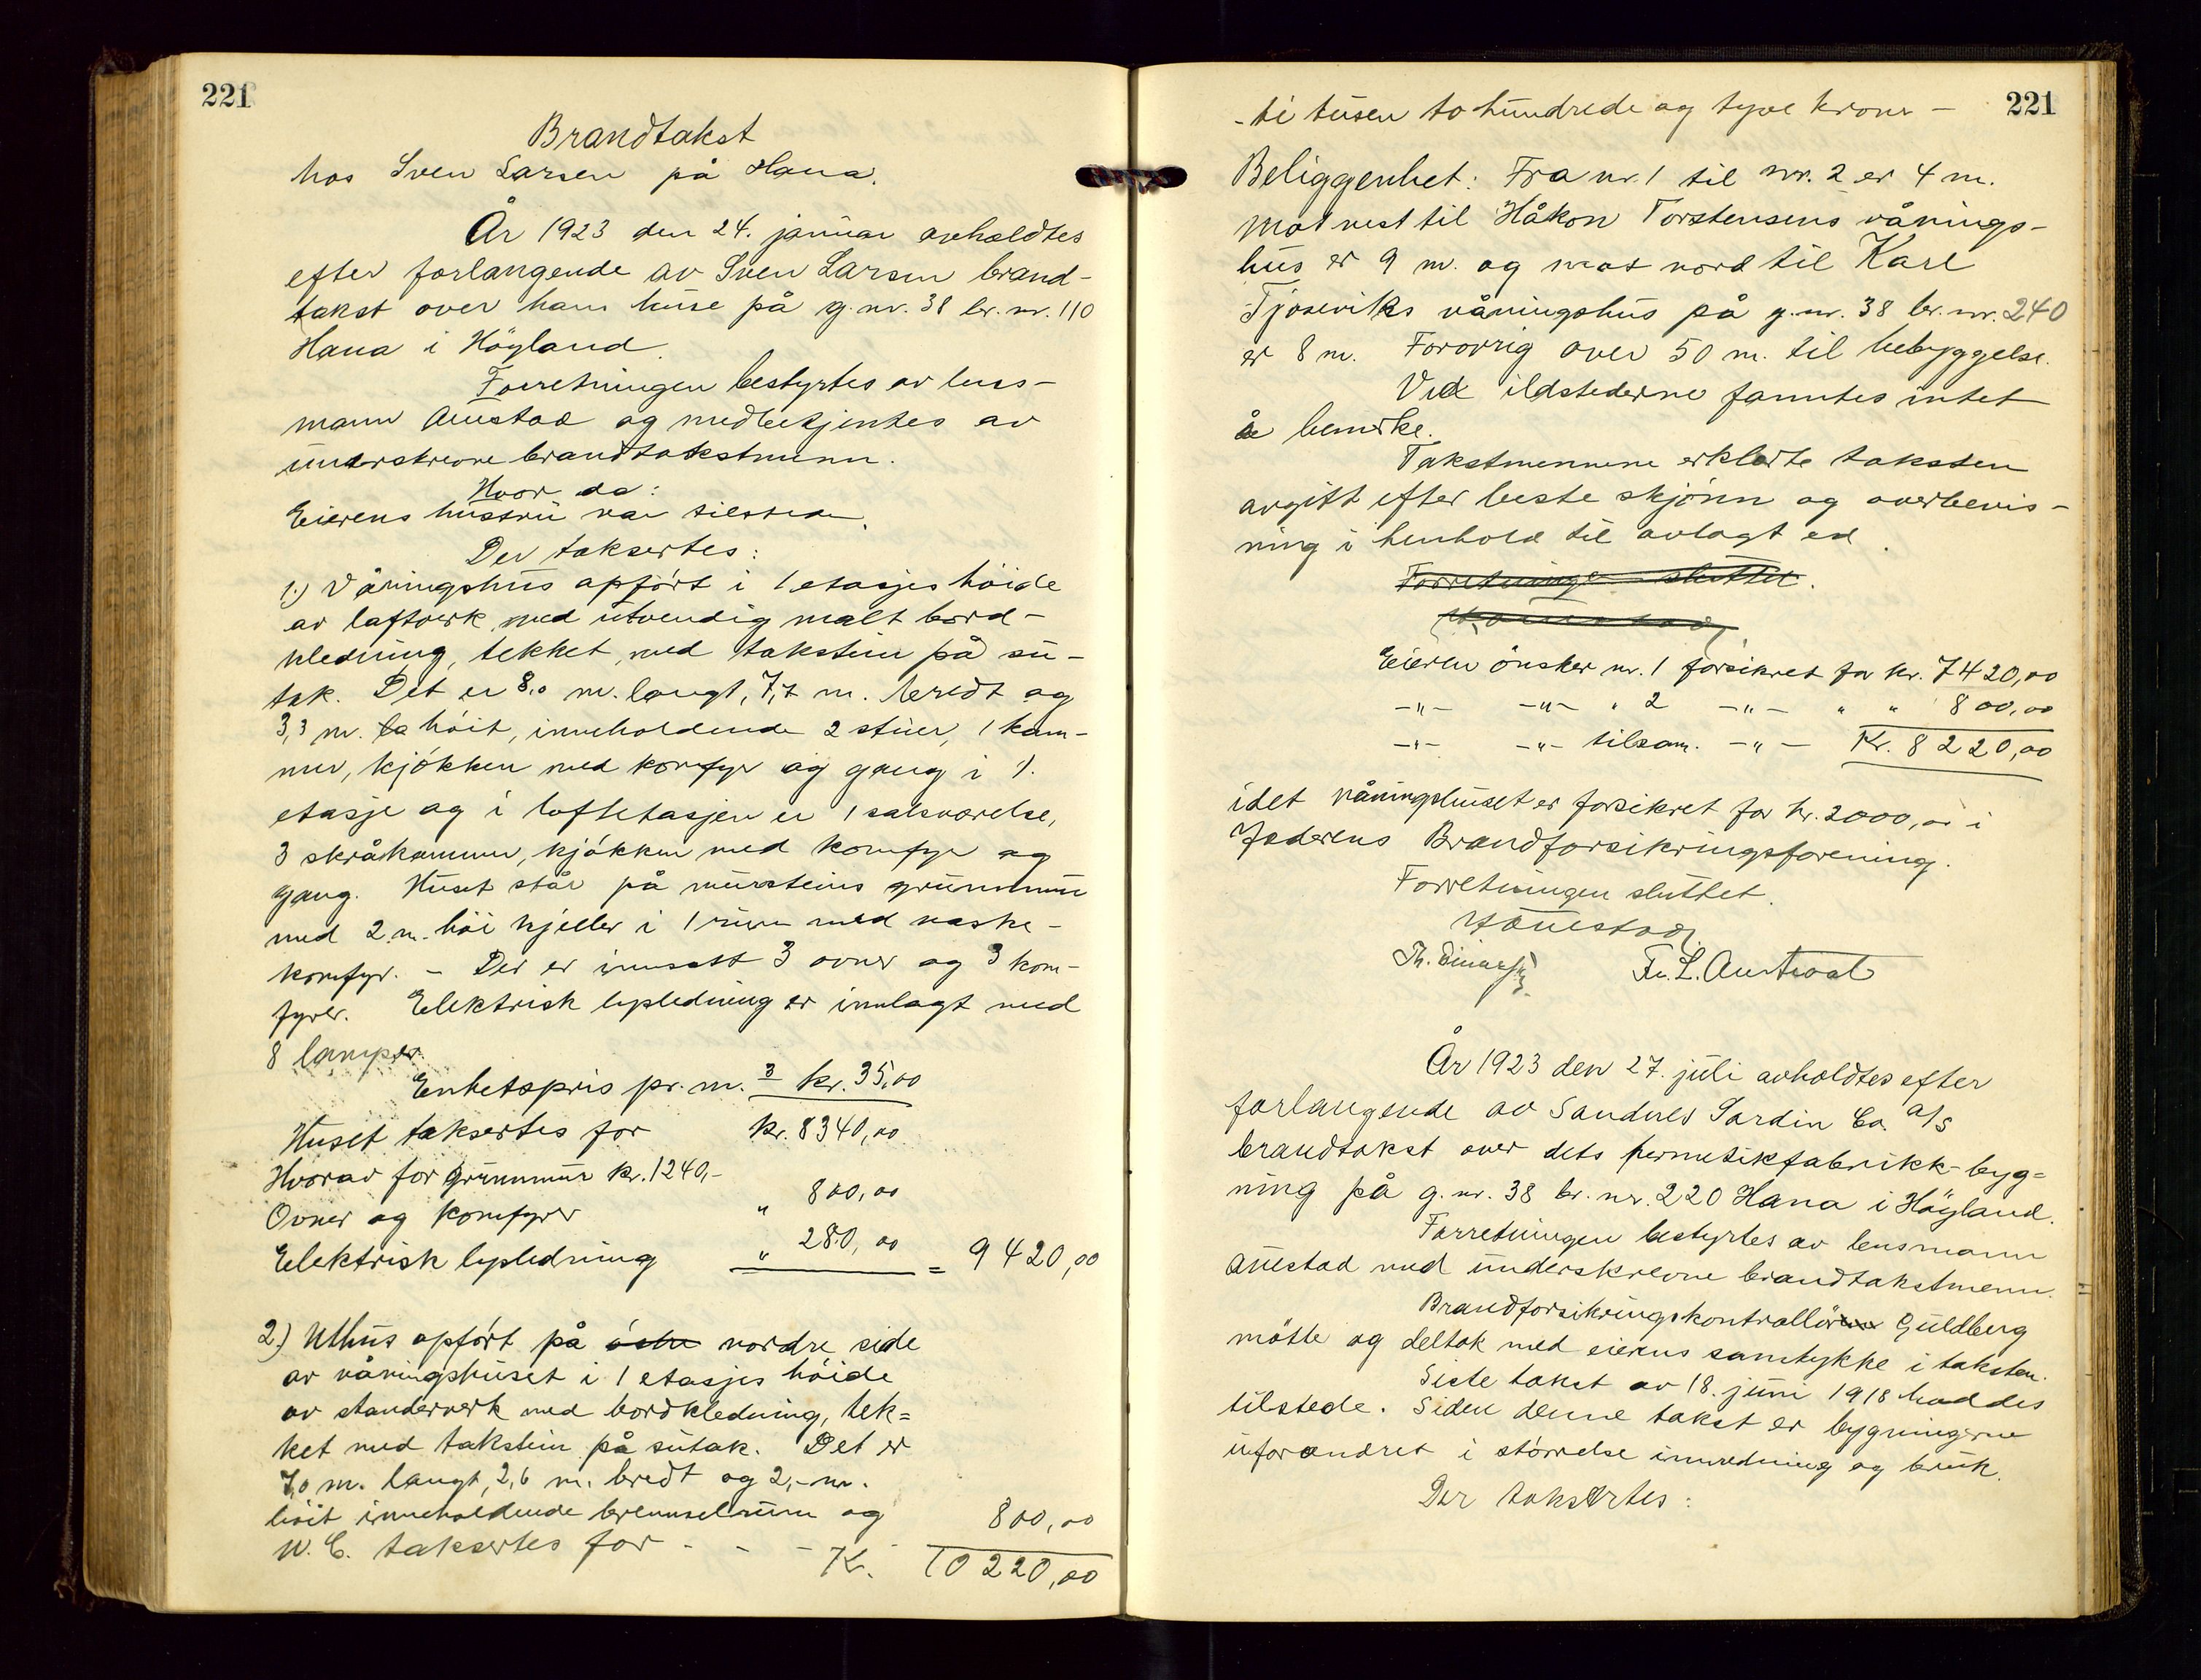 221
Brandtakst
hos Sven Larsen på Hana.
År 1923 den 24. januar avholdtes
efter forlangende av Sven Larsen brand-
takst over hans huse på g.nr. 38 br.nr. 110
Hana i Höyland.
Forretningen bestyrtes av lens-
mann Auestad og medbetjentes av
underskrevne brandtakstmenn.
Hvor da:
Eierens hustru var tilstede.
Der taksertes:
1.) Våningshus opført i 1 etasjes höide
av laftverk med utvendig malt bord-
kledning, tekket med takstein på su-
tak. Det er 8,0 m. langt, 7,7 m. bredt og
3,3 m. la höit, inneholdende 2 stuer, 1 kam-
mer, kjøkken med komfyr og gang i 1.
etasje og i loftetasjen er 1 salsværelse,
3 skråkammer, kjøkken med komfyr og
gang. Huset står på mursteins grunnmur
med 2 m. höi kjeller i 1 rum med vaske-
komfyr. - Der er innsatt 3 ovner og 3 kom-
fyrer. Elektrisk lysledning er innlagt med
8 lamper.
Enhetspris pr. m.3 kr. 35,00
Huset taksertes for kr. 8340,00
Hvorav for grunnmur kr. 1240,-
Ovner og komfyrer " 800,00
Elektrisk lysledning " 280,00 = 9420,00
2.) Uthus opført på östre nordre side
av våningshuset i 1 etasjes höide
av standerverk med bordkledning, tek=
ket med takstein på sutak. Det er
7,0 m. langt, 2,6 m. bredt og 2,- m.
höit inneholdende brennselrum og
W.C. taksertes for - - - 800,00
Kr. 10220,00
221
- ti tusen to hundrede og tyve kroner -
Beliggenhet: Fra nr. 1 til nr. 2 er 4 m.
Mot vest til Håkon Torstensens vånings-
hus er 9 m. og mot nord til Karl
Tjoseviks våningshus på g.nr. 38 br.nr. 240
er 8 m. Forøvrig over 50 m. til bebyggelse.
Ved ildstederne fanntes intet
å bemerke.
Takstmennene erklærte taksten
avgitt efter beste skjønn og overbevis-
ning i henhold til avlagt ed.
Forretningen sluttet.
Eieren önsker nr. 1 forsikret for kr. 7420,00
-"- -"- " 2 -"- " " 800,00
-"- -"- tilsam. -"- Kr. 8220,00
idet våningshuset er forsikret for kr. 2000,00 i
Jæderens Brandforsikringsforening.
Forretningen sluttet.
Auestad
Fr. L. Austvoal
År 1923 den 27. juli avholdtes efter
forlangende av Sandnes Sardin Co. A/S
brandtakst over dets hermetikfabrikk-byg=
ning på g.nr. 38 br.nr. 220 Hana i Höyland.
Forretningen bestyrtes av lensmann
Auestad med underskrevne brandtakstmenn.
Brandforsikringskontrollören Guldberg
mötte og deltok med eierens samtykke i taksten.
Siste takst av 18. juni 1918 haddes
tilstede. Siden denne takst er bygningerne
uforandret i störrelse innredning og bruk.
Der taksertes: